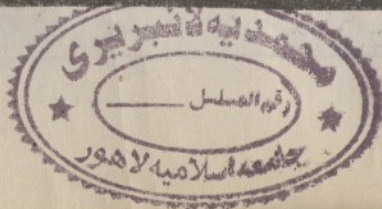 محمدیہ لائبریری
رقم المسلسل
جامعہ اسلامیہ لاہور